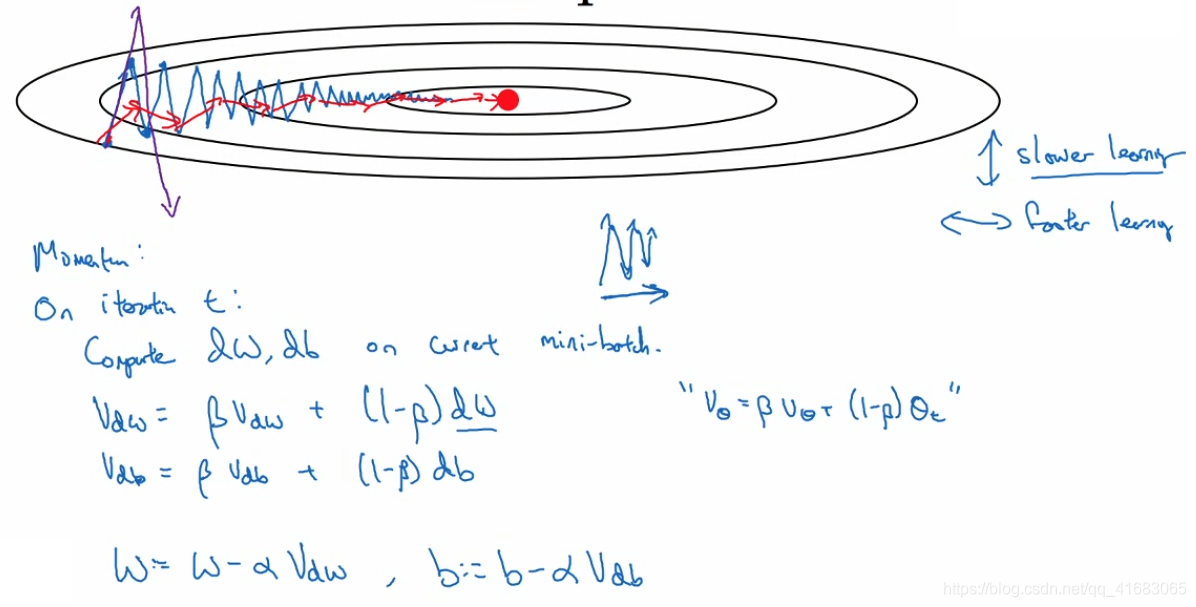 slower learning
faster learning
Momentum:
On iteration t:
Compute dW, db on current mini-batch.
V_dw = β V_dw + (1-β) dW
"V_θ = β V_θ + (1-β) θ_t"
V_db = β V_db + (1-β) db
W := W - α V_dw , b := b - α V_db
https://blog.csdn.net/qq_41683065